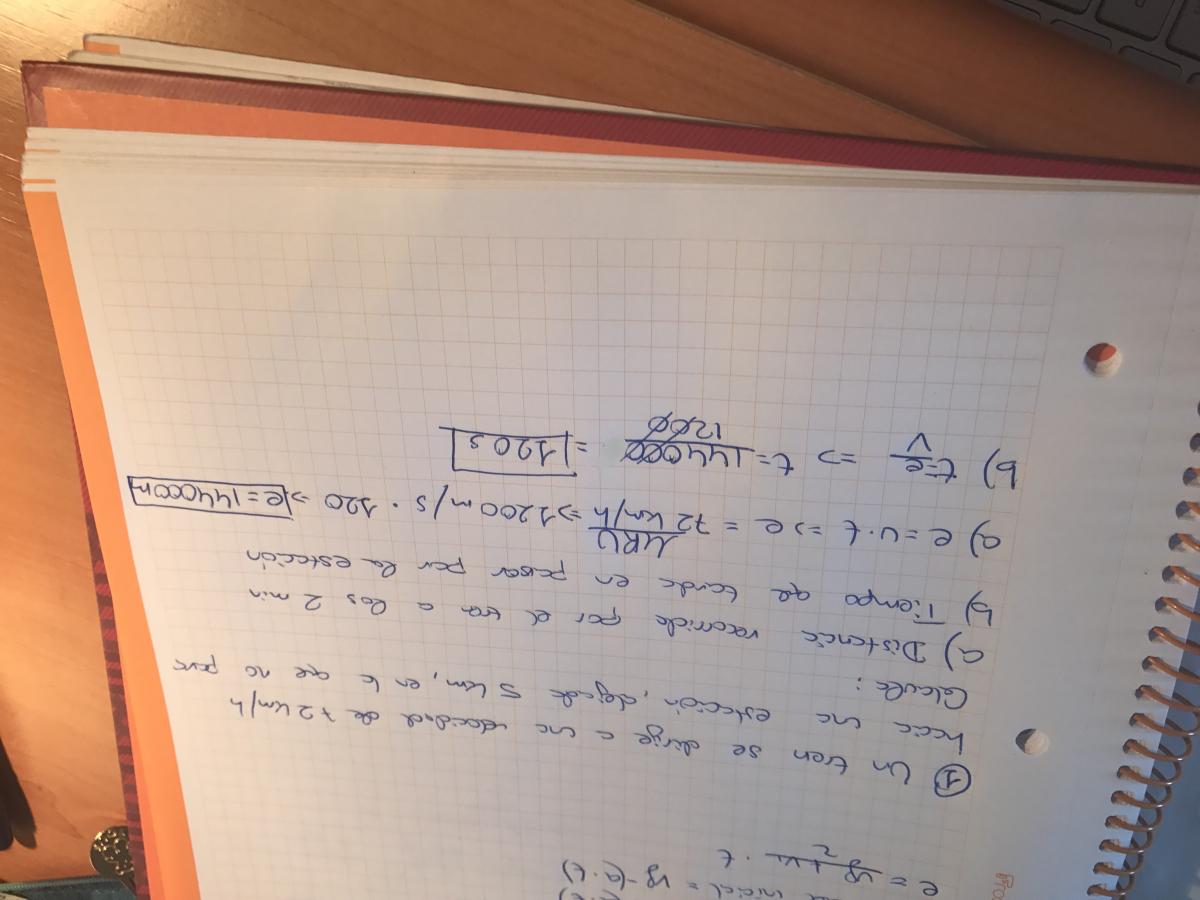 inicial = vf - (a·t)
e = vf + vi / 2 · t
① Un tren se dirige a una velocidad de 72 km/h
hacia una estación, alejada 5 km, en la que no para
Calcula:
a) Distancia recorrida por el tren a los 2 min
b) Tiempo que tarda en pasar por la estación
MRU
a) e = v·t => e = 72 km/h => 1200 m/s · 120 => e = 144000 m
b) t = e/V => t = 144000/1200 = 120 s